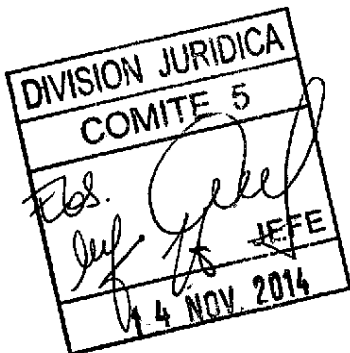 DIVISION JURIDICA
COMITE 5
JEFE
14 NOV. 2014